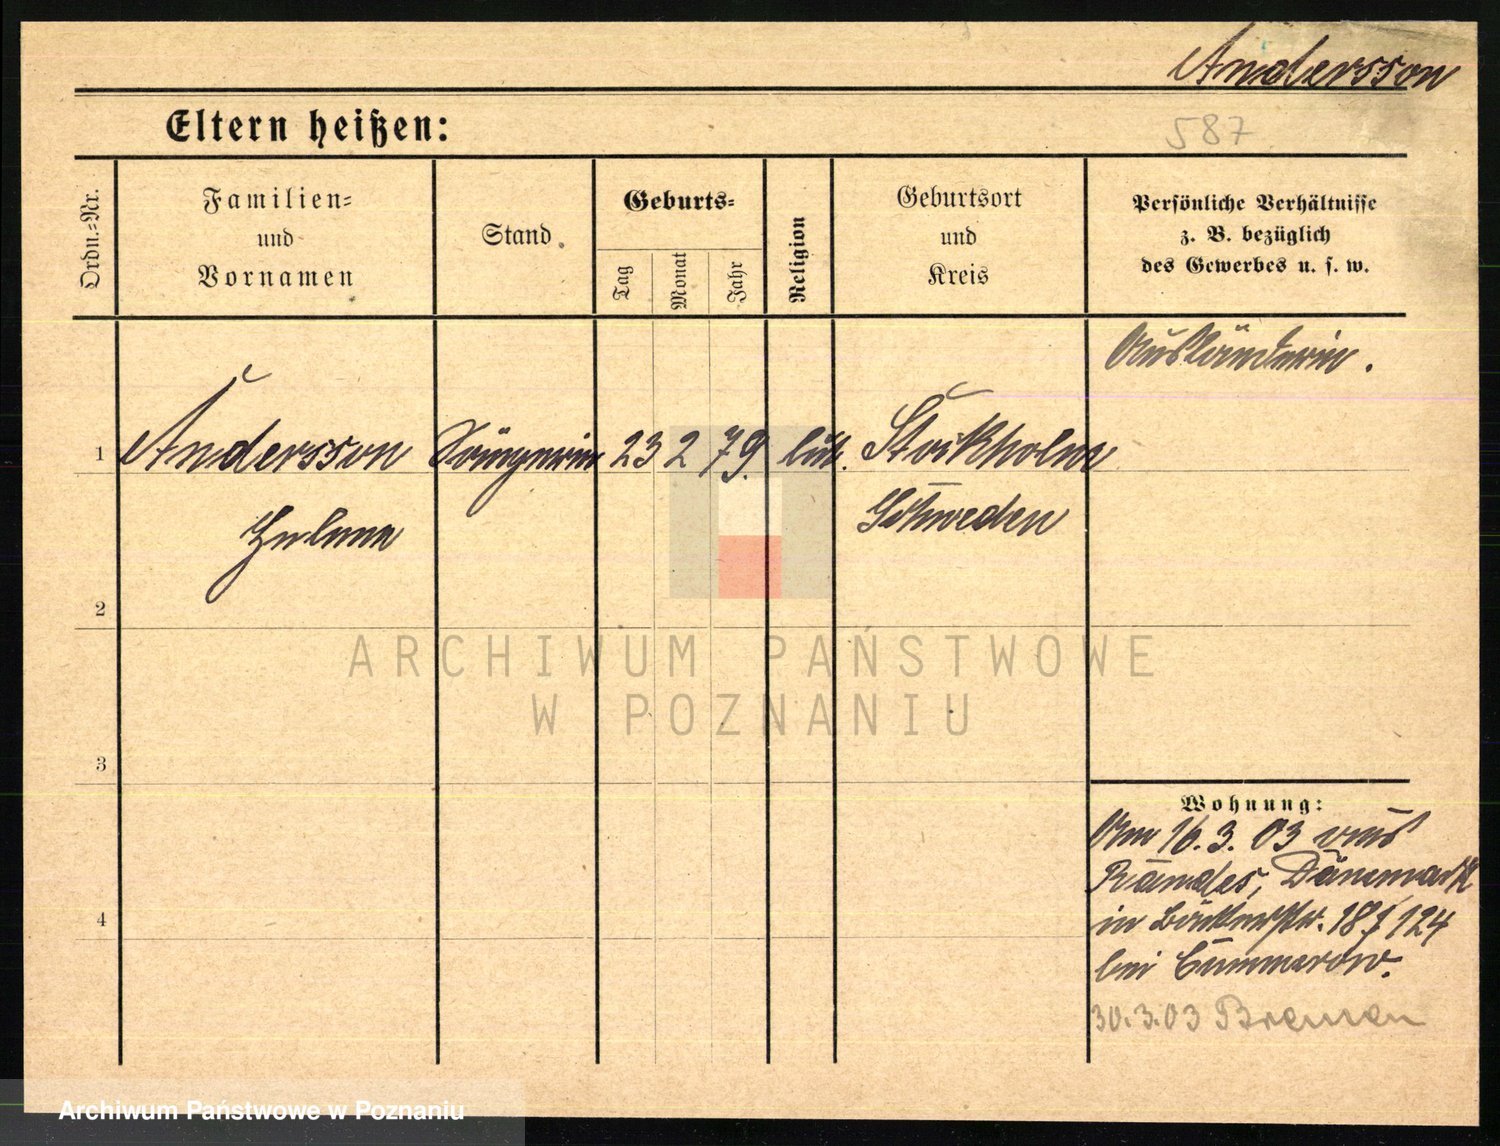 Andersson
Eltern heißen:
587
Ordn.-Nr.
Familien-
und
Vornamen
Stand
Geburts-
Tag
Monat
Jahr
Religion
Geburtsort
und
Kreis
Persönliche Verhältnisse
z. B. bezüglich
des Gewerbes u. s. w.
Ausländerin.
1 Andersson Sängerin 23 2 79. luth. Stockholm
Schweden
2
3
4
Wohnung:
Am 16.3.03 aus
Randes, Dänemark
in Bäckerstr. 18 124
bei Cummerow.
30.3.03 Bremen
ARCHIWUM PAŃSTWOWE
W POZNANIU
Archiwum Państwowe w Poznaniu